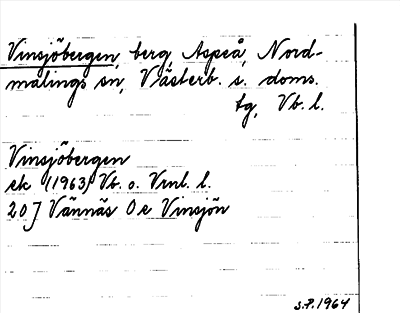 Vinsjöbergen, berg, Aspeå, Nord-
malings sn, Västerb. s. doms.
tg, Vb. l.
Vinsjöbergen
ek (1963) Vb. o. Vrnl. l.
20 J Vännäs Öe Vinsjön
S.P. 1964